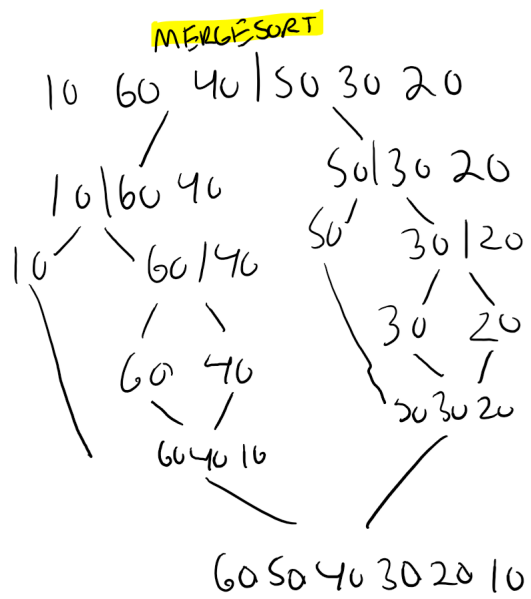 MERGESORT
10 60 40 | 50 30 20
10 | 60 40
50 | 30 20
10
60 | 40
50
30 | 20
60 40
30 20
60 40 10
50 30 20
60 50 40 30 20 10